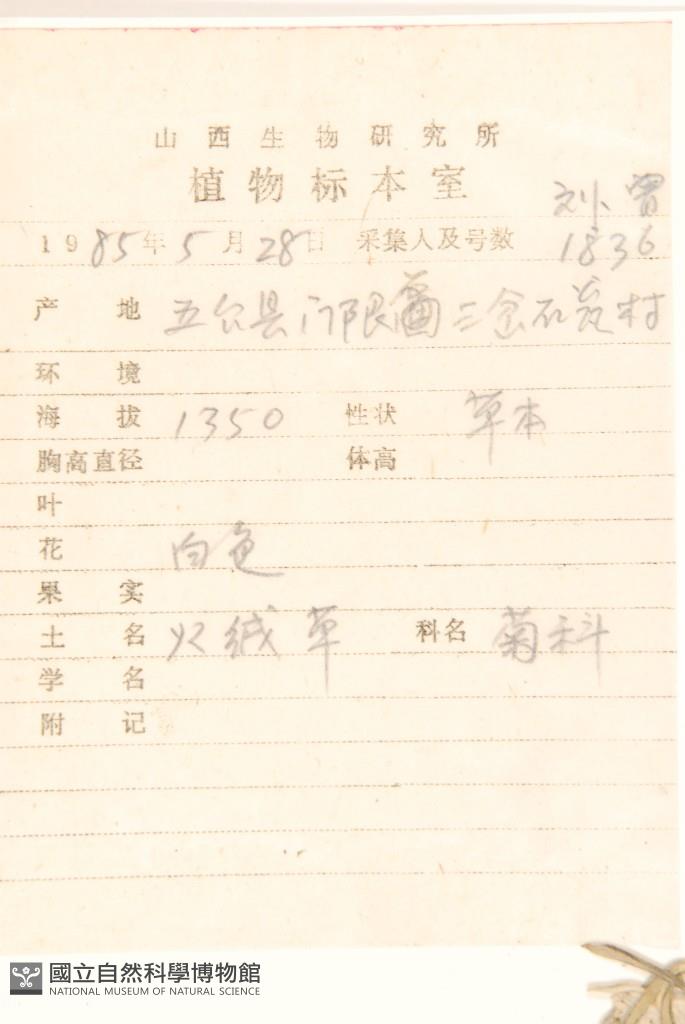 山西生物研究所
植物标本室
刘 曾
1985年5月28日 采集人及号数 1836
产地 五台县门限 二 石 村
环境
海拔 1350 性状 草本
胸高直径 体高
叶
花 白色
果实
土名 火绒草 科名 菊科
学名
附记
國立自然科學博物館
NATIONAL MUSEUM OF NATURAL SCIENCE